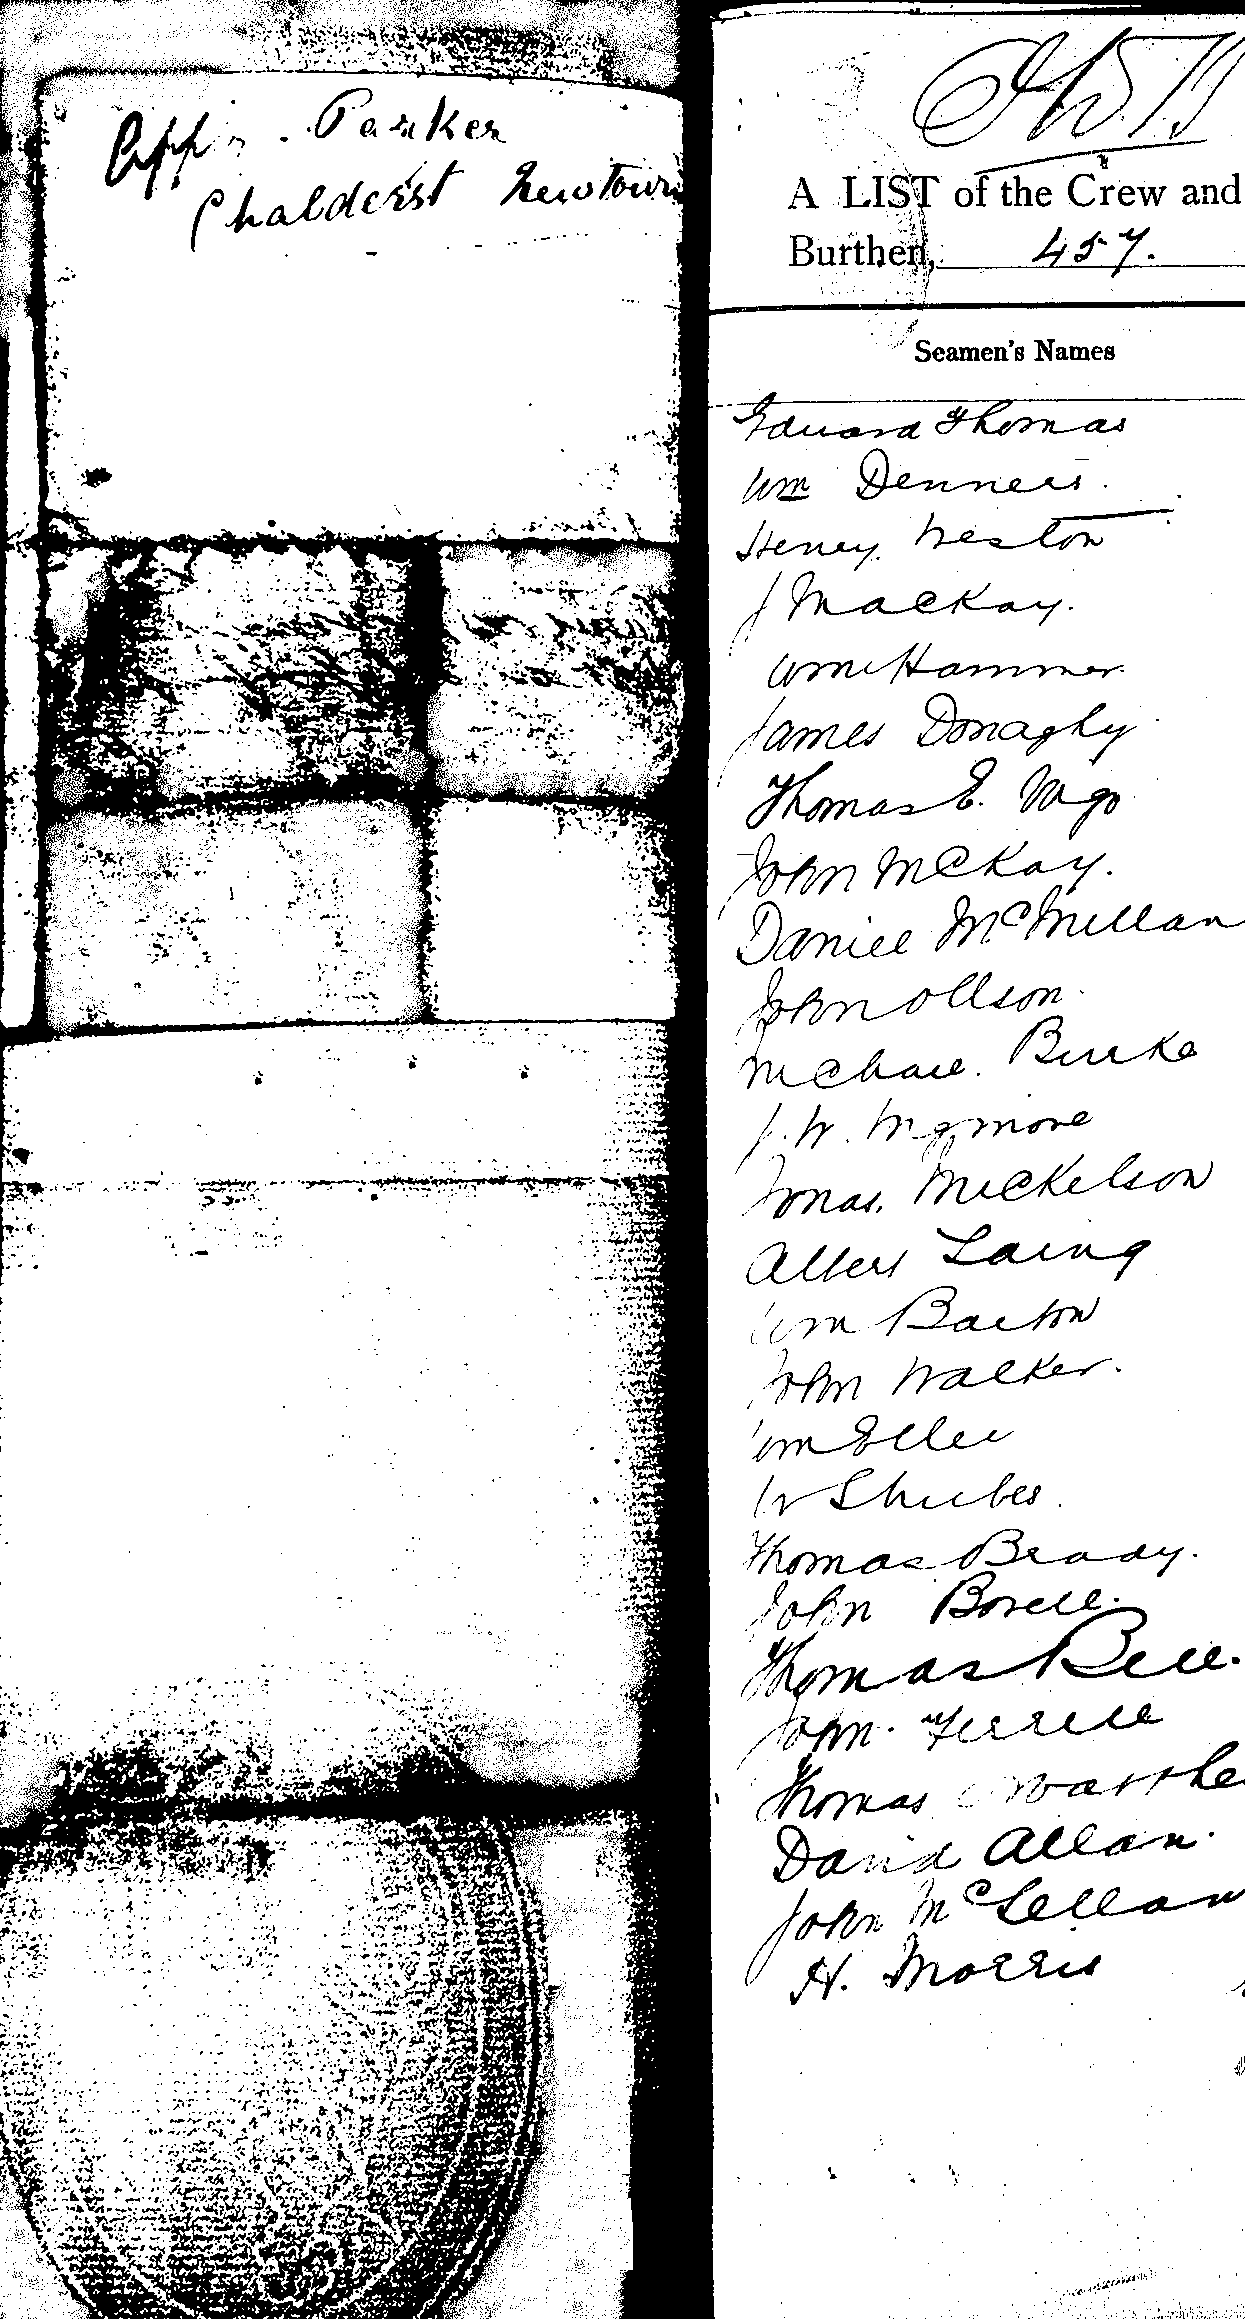 App. Parker
Chalderst Newtown
A LIST of the Crew and
Burthen, 457.
Seamen's Names
Edward Thomas
Wm Denneis.
Henry Weston
J Mackay.
Wm Hammer
James Donaghy
Thomas E. Vigo
John McKay.
Daniel McMillan
John Ollson.
Michael. Burke
J. W. Wigmore
Jonas. Mickelson
Albert Laing
Wm Barton
John Walker.
Wm Eller
W Shubes.
Thomas Brady.
John Borell.
Thomas Bell.
John. Ferrell
Thomas
David Allan.
John McLellan
H. Morris